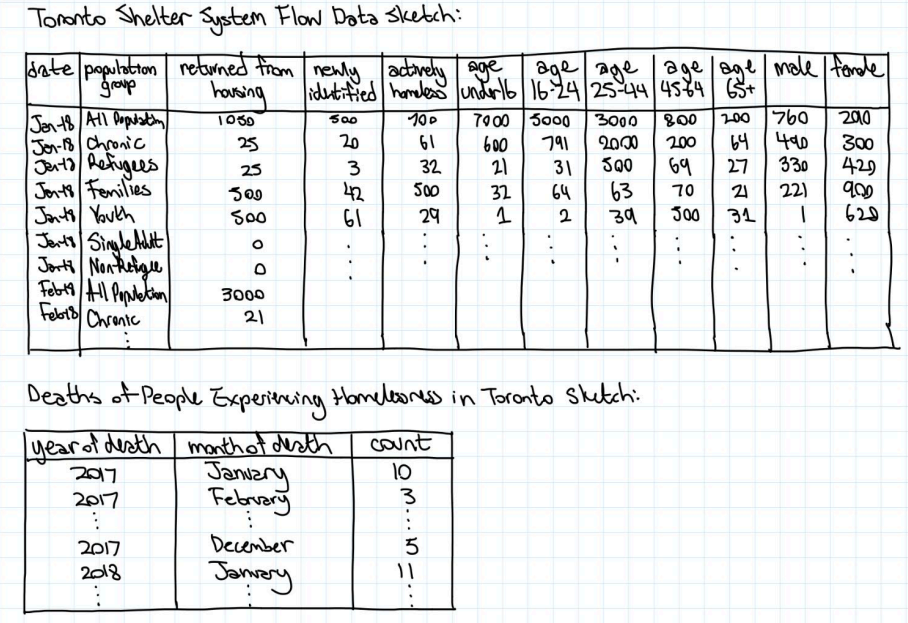 Toronto Shelter System Flow Data Sketch:
date population group returned from housing newly identified actively homeless age under 16 age 16-24 age 25-44 age 45-64 age 65+ male female
Jan-18 All Population 1050 500 700 7000 5000 3000 800 200 760 200
Jan-18 Chronic 25 20 61 600 791 2000 200 64 490 300
Jan-18 Refugees 25 3 32 21 31 500 69 27 330 420
Jan-18 Families 500 42 500 32 64 63 70 21 221 900
Jan-18 Youth 500 61 29 1 2 39 500 31 1 620
Jan-18 Single Adult 0
Jan-18 Non-Refugee 0
All Population 3000
Feb-18 Chronic 21
Deaths of People Experiencing Homelessness in Toronto Sketch:
year of death month of death count
2017 January 10
2017 February 3
2017 December 5
2018 January 11